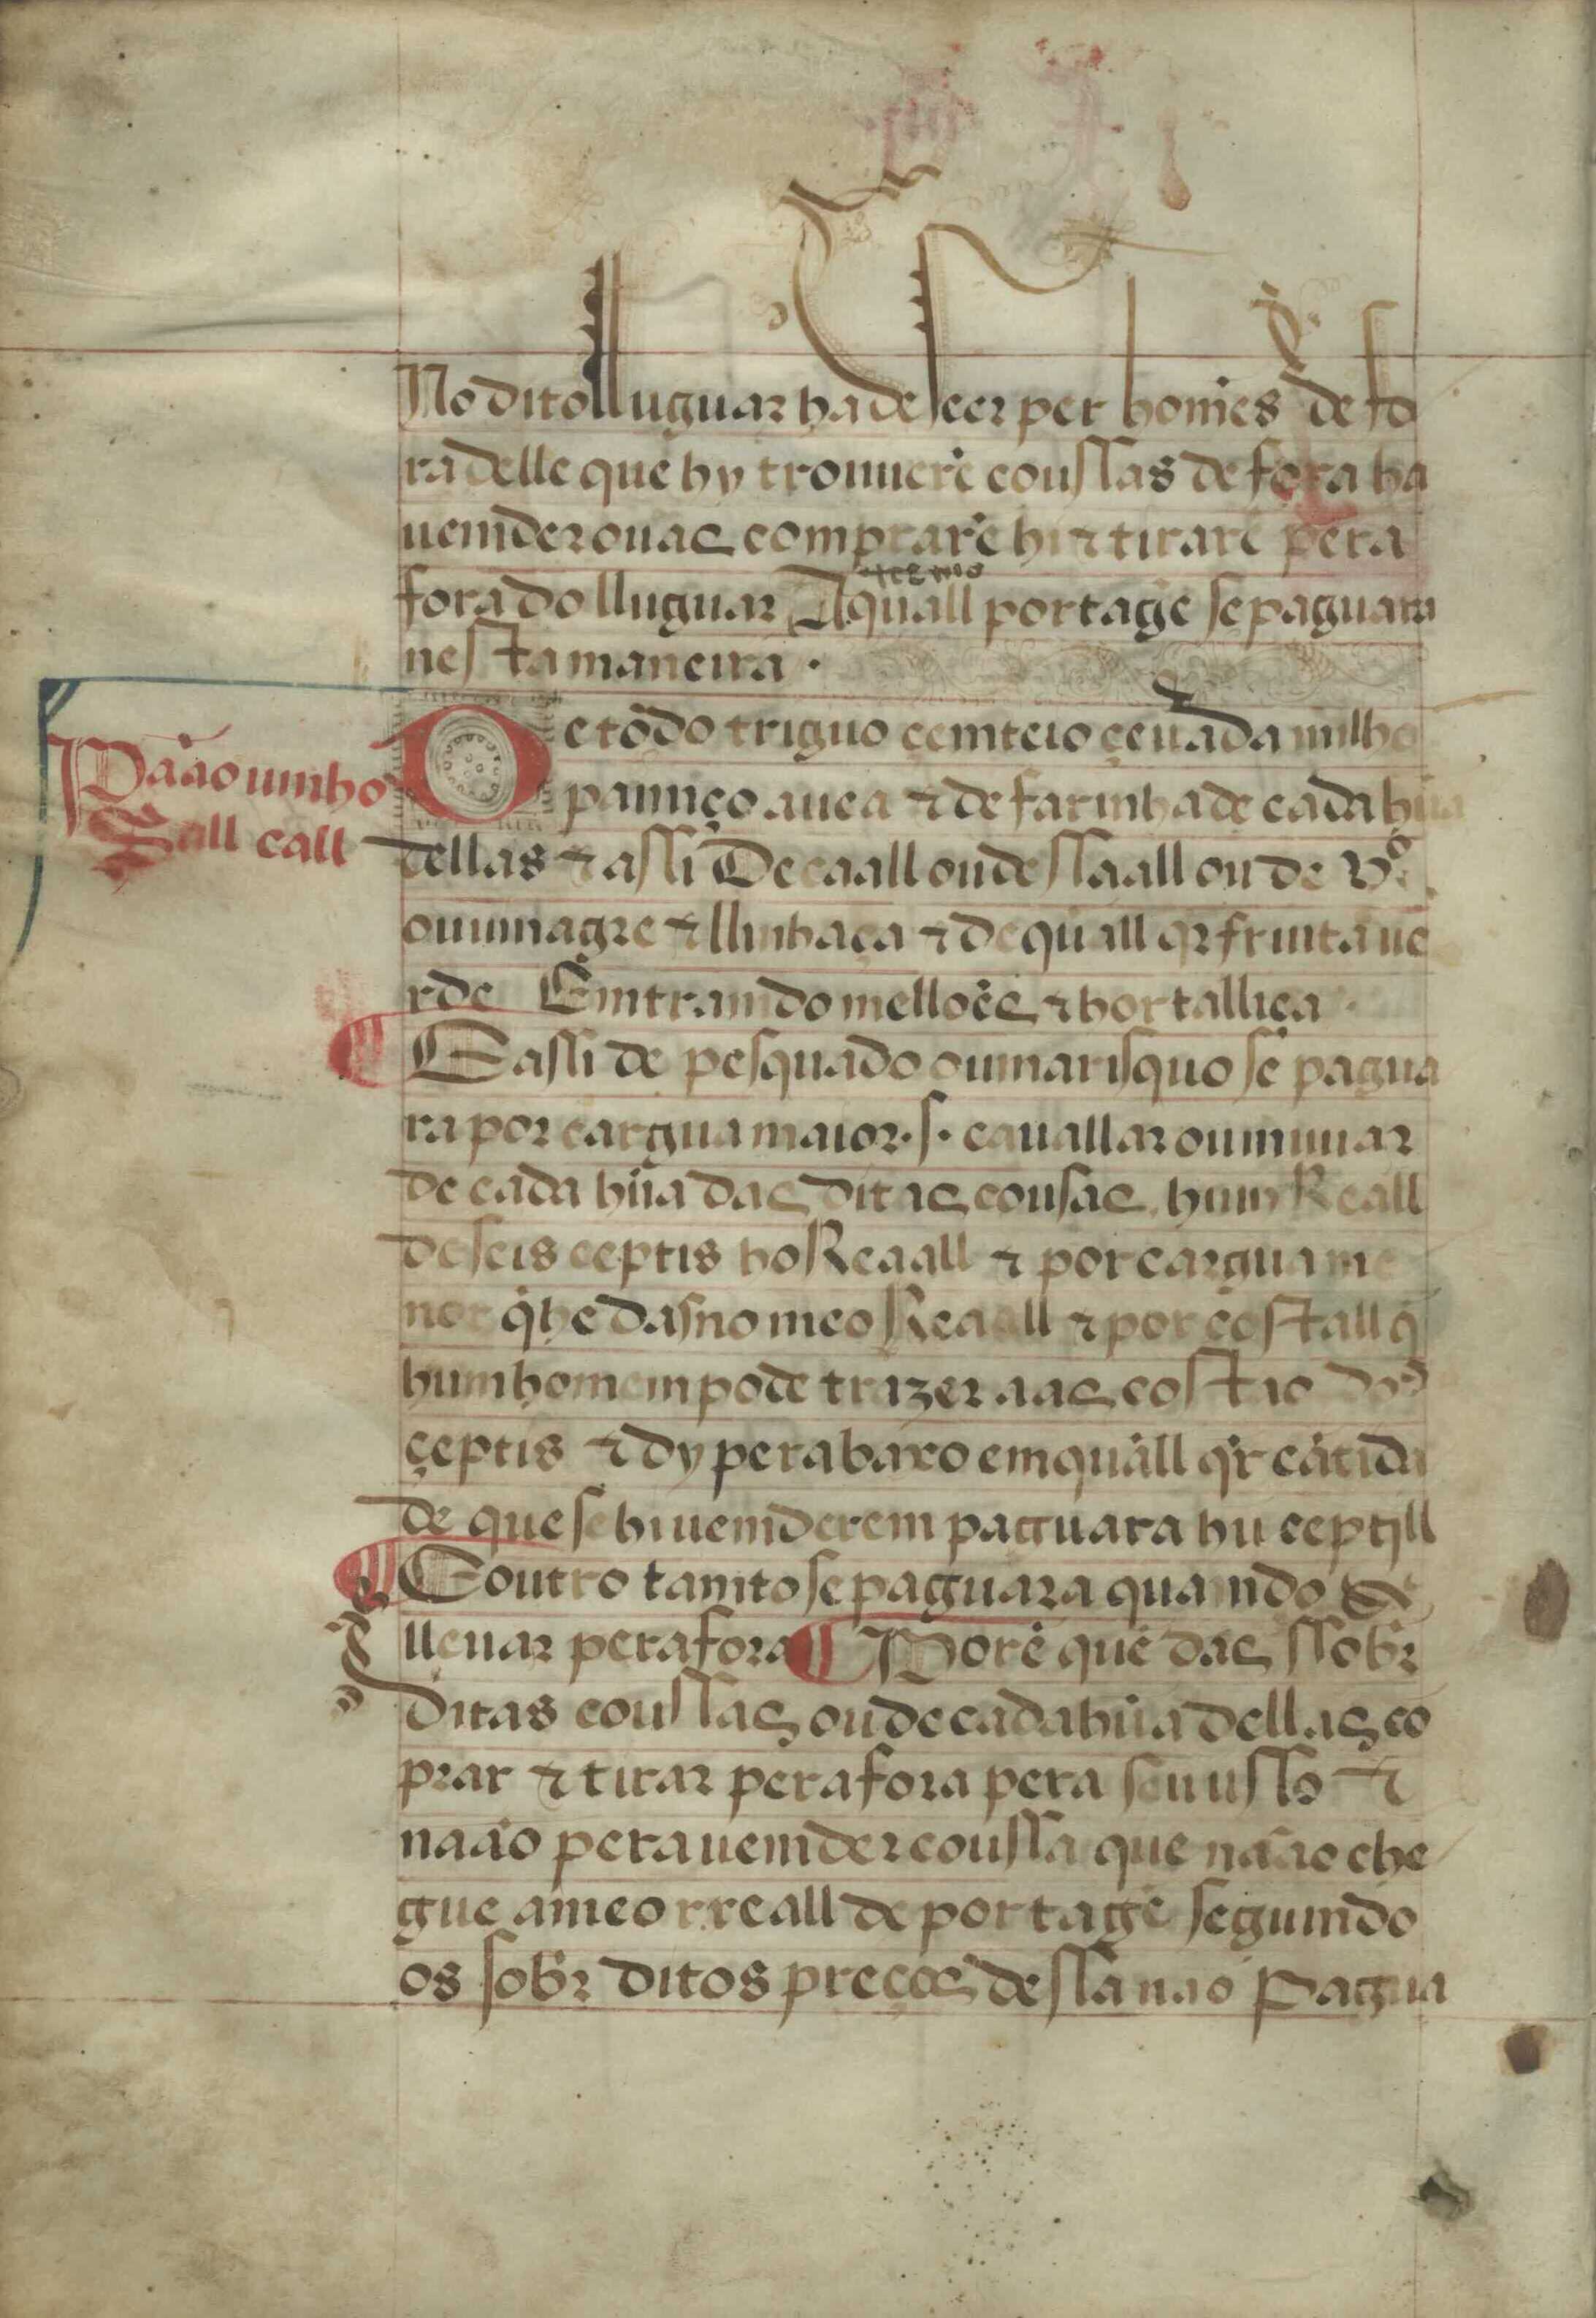 No dito lluguar ha de seer per homẽs de fo
ra delle que hy trouuerẽ coussas de fora ha
uemder ou as comprarẽ hi ⁊ tirarẽ pera
fora do lluguar A quall portagẽ se paguara
nesta maneira .
Paão uinho
Sall call
De todo triguo çemteio çeuada milho
painiço auea ⁊ de farinha de cada hũa
dellas ⁊ assi De caall ou de ssaall ou de vº
ou uinagre ⁊ llinhaça ⁊ de quall qr fruita ue
rde Emtramdo mellões ⁊ hortalliça .
E assi de pesquado ou marisquo se pagua
ra por cargua maior .s. cauallar ou muuar
de cada hũa das ditas cousas hum Reall
de seis ceptis ho Reaall ⁊ por cargua me
nor q̃ he dasno meo Reaall ⁊ por costall q̃
hum homem pode trazer aas costas dos
çeptis ⁊ dy pera baxo em quall qr cãtida
de que se hi uemderem paguara hũ ceptill
E outro tamto se paguara quamdo se
lleuar pera fora Porẽ que das ssobr
ditas coussas ou de cada hũa dellas cõ
prar ⁊ tirar pera fora pera seu usso ⁊
naão pera uemder coussa que naão che
gue a meo rreall de portagẽ segumdo
os sobr ditos preços dessa naõ pagua